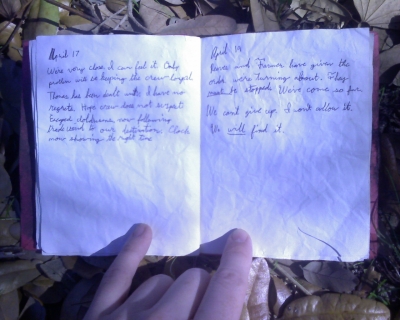 April 17
We're very close. I can feel it. Only
problem will be keeping the crew loyal.
Thomas has been dealt with. I have no
regrets. Hope crew does not suspect.
Escaped doldrums, now following
trade wind to our destination. Clock
now showing the right time
April 19
Reeves and Farmer have given the
order were turning about. They
must be stopped. We've come so far.
We can't give up. I won't allow it.
We will find it.